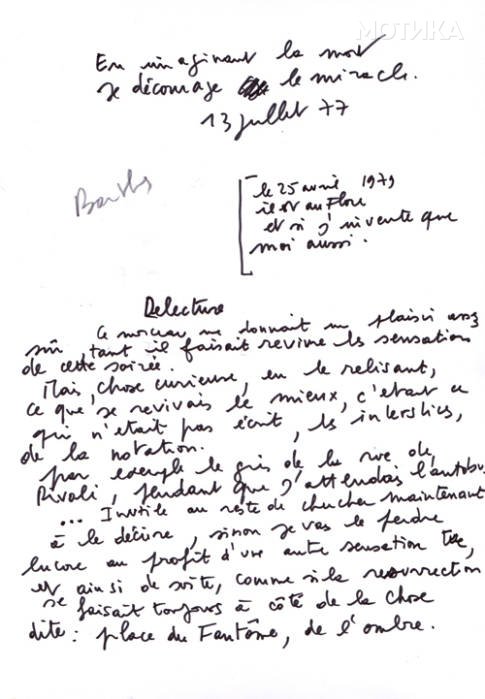 МОТИКА
En imaginant la mort
je décourage le miracle.
13 juillet 77
Barthes
le 25 avril 1979
il est au Flore
et si j'invente que
moi aussi.
Relecture
Ce morceau me donnait un plaisir assez
sûr tant il faisait revivre les sensations
de cette soirée.
Mais, chose curieuse, en le relisant,
ce que je revivais le mieux, c'était ce
qui n'était pas écrit, les interstices,
de la notation.
par exemple le gris de la rue de
Rivoli, pendant que j'attendais l'autobus
... Inutile au reste de chercher maintenant
à le décrire, sinon je vais le perdre
encore au profit d'une autre sensation
et ainsi de suite, comme si la resurrection
se faisait toujours à côté de la chose
dite : place du Fantôme, de l'ombre.